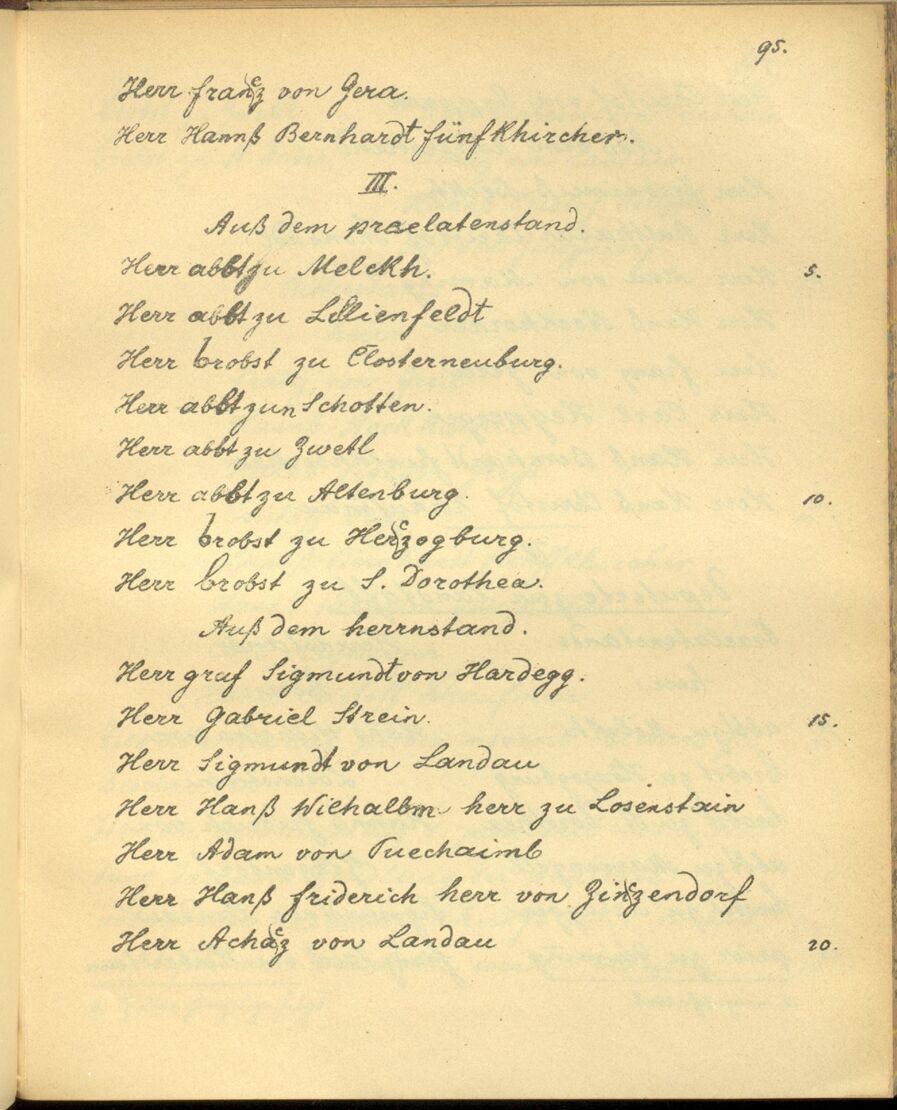 95.
Herr francz von Gera.
Herr Hannß Bernhardt fünfkhircher.
III.
Auß dem praelatenstand.
Herr abbt zu Melckh. 5.
Herr abbt zu Lilienfeldt
Herr brobst zu Closterneuburg.
Herr abbt zun Schotten.
Herr abbt zu Zwetl
Herr abbt zu Altenburg. 10.
Herr brobst zu Herczogburg.
Herr brobst zu S. Dorothea.
Auß dem herrnstand.
Herr graf Sigmundt von Hardegg.
Herr Gabriel Strein. 15.
Herr Sigmundt von Landau
Herr Hanß Wilhalbm herr zu Losenstain
Herr Adam von Puechaimb
Herr Hanß friderich herr von Zinczendorf
Herr Achacz von Landau 20.